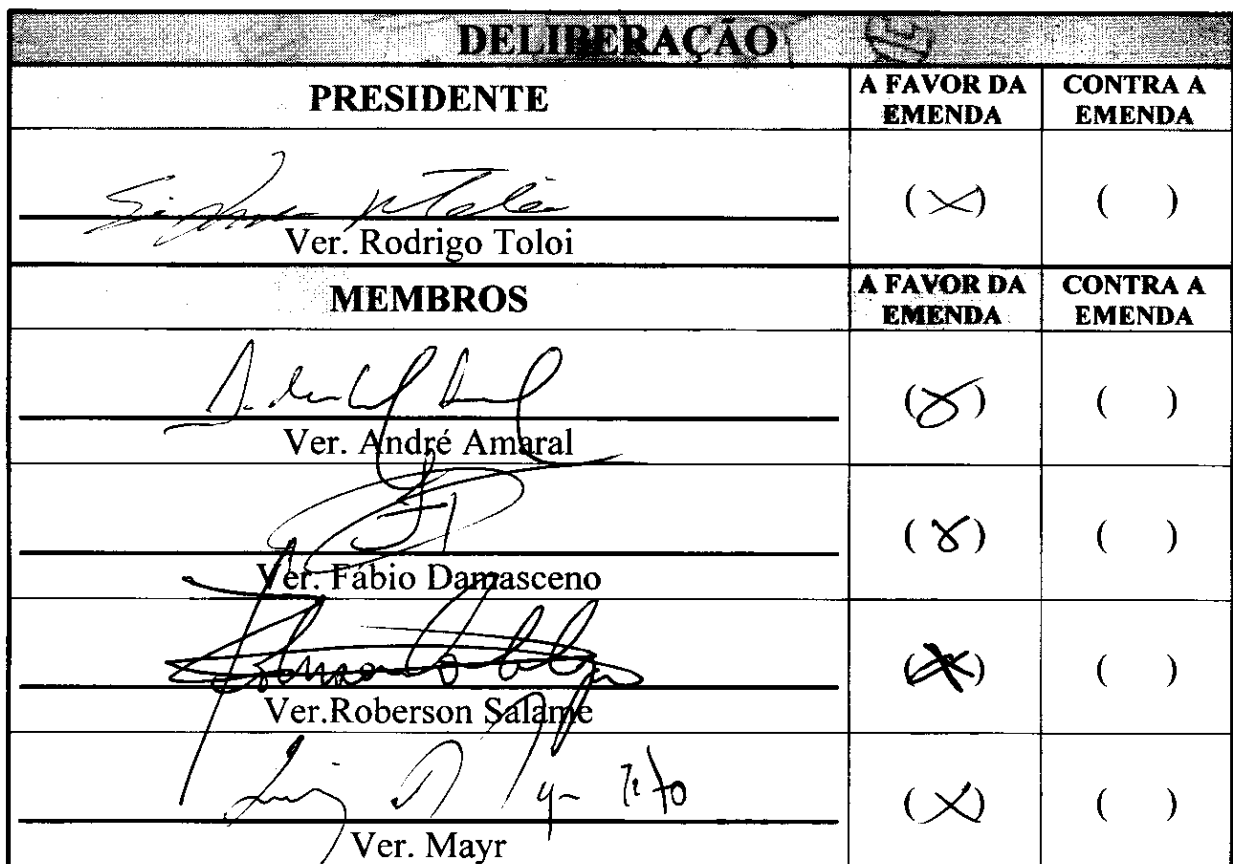 DELIBERAÇÃO
PRESIDENTE
A FAVOR DA EMENDA
CONTRA A EMENDA
Ver. Rodrigo Toloi
(X)
( )
MEMBROS
A FAVOR DA EMENDA
CONTRA A EMENDA
Ver. André Amaral
(X)
( )
Ver. Fábio Damasceno
(X)
( )
Ver.Roberson Salame
(X)
( )
Ver. Mayr
(X)
( )